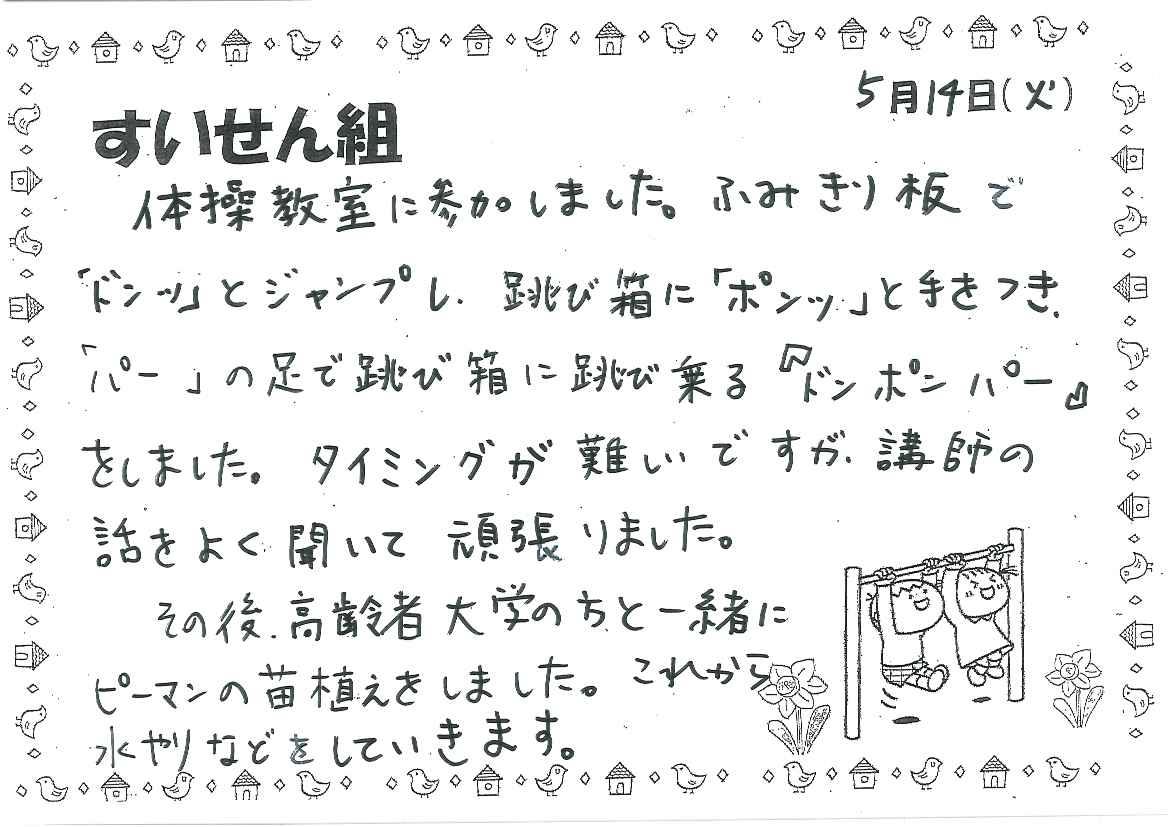 5月14日(火)
すいせん組
体操教室に参加しました。ふみきり板で
「ドンッ」とジャンプし、跳び箱に「ポンッ」と手をつき、
「パー」の足で跳び箱に跳び乗る『ドンポンパー』
をしました。タイミングが難しいですが、講師の
話をよく聞いて頑張りました。
その後、高齢者大学の方と一緒に
ピーマンの苗植えをしました。これから
水やりなどをしていきます。